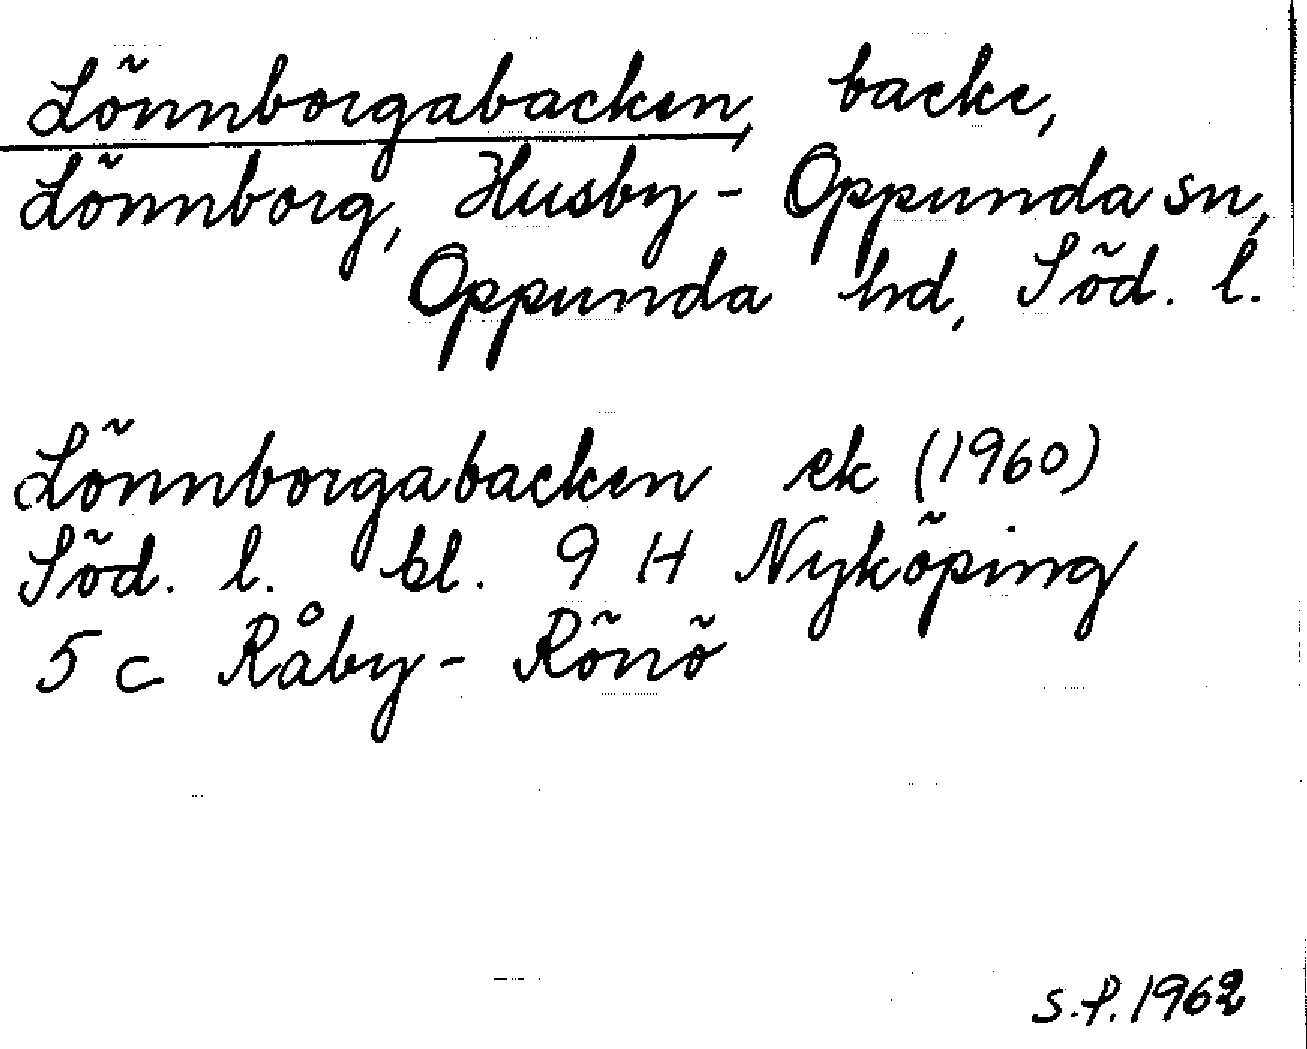 Lönnborgabacken, backe,
Lönnborg, Husby-Oppunda sn,
Oppunda hd, Söd. l.
Lönnborgabacken ek (1960)
Söd. l. bl. 9 H Nyköping
5 c Råby-Rönö
S.P. 1962